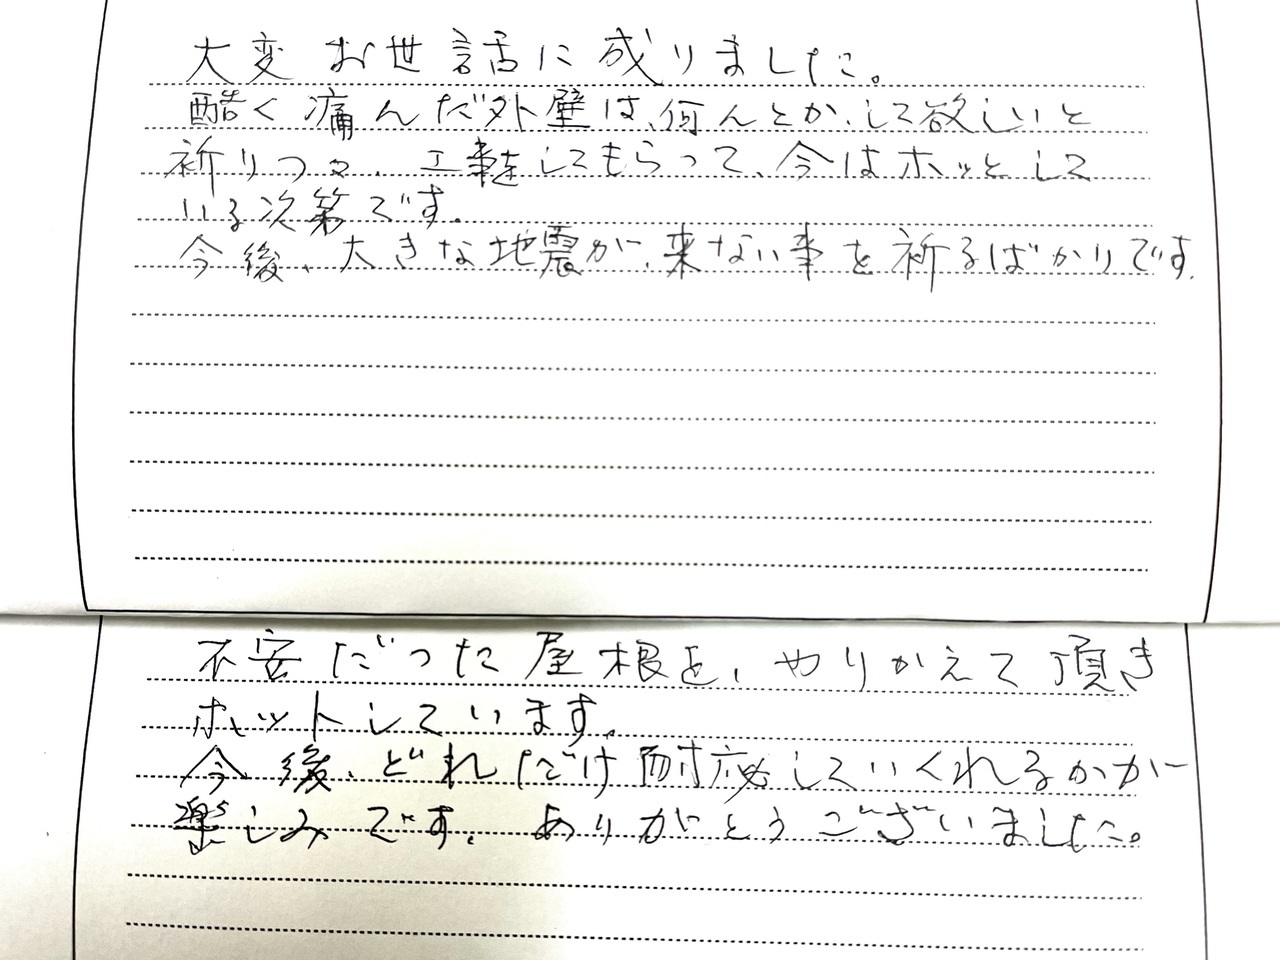 大変お世話に成りました。
酷く痛んだ外壁は、何んとか、して欲しいと
祈りつつ、工事をしてもらって、今はホッとして
いる次第です。
今後、大きな地震が、来ない事を祈るばかりです。
不安だった屋根を、やりかえて頂き
ホットしています。
今後、どれだけ耐していくれるかが
楽しみです。ありがとうございました。